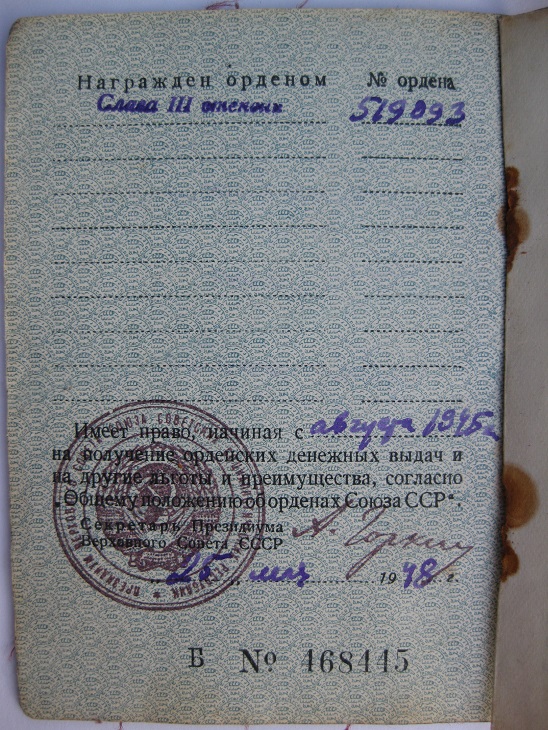 Награжден орденом № ордена
Слава III степени 519093
Имеет право, начиная с августа 1945 г.
на получение орденских денежных выдач и
на другие льготы и преимущества, согласно
„Общему положению об орденах Союза ССР“.
Секретарь Президиума
Верховного Совета СССР А. Горкин
25 мая 1948 г.
Б № 468445